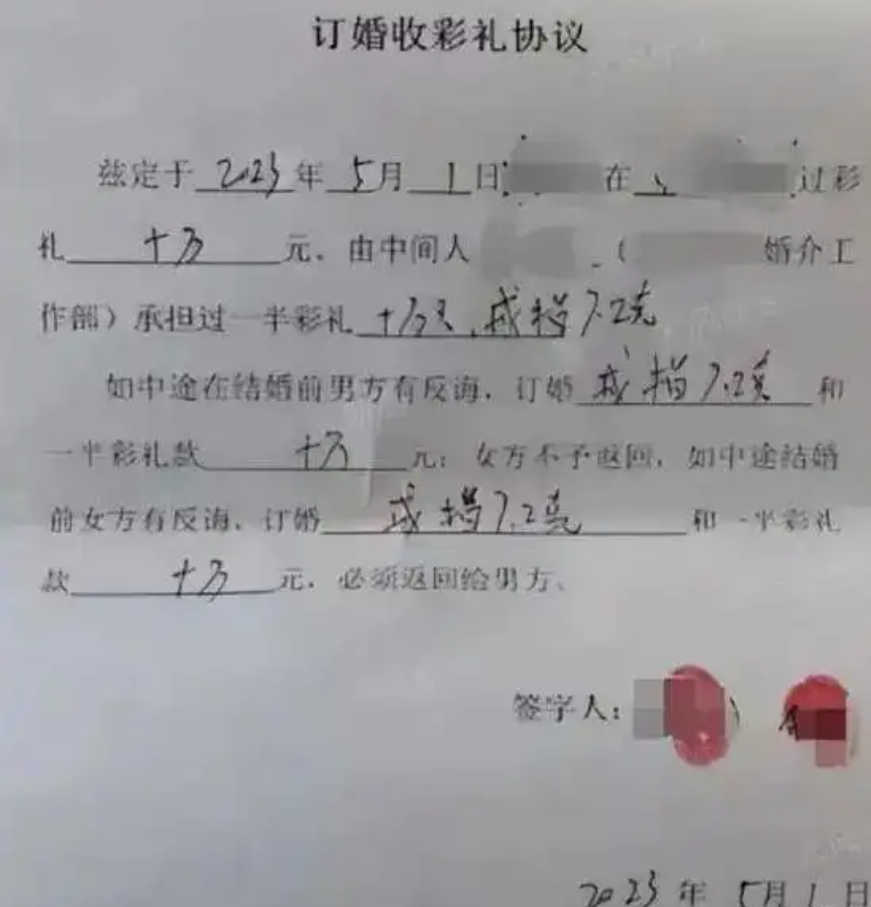 订婚收彩礼协议
兹定于 2023 年 5 月 1 日 在 过彩
礼 十万 元、由中间人 ( 婚介工
作部）承担过一半彩礼 十万元，戒指7.2克
如中途在结婚前男方有反海、订婚 戒指7.2克 和
一半彩礼款 十万 元；女方不予返回，如中途结婚
前女方有反海、订婚 戒指7.2克 和一半彩礼
款 十万 元、必须返回给男方、
签字人：
2023 年 5月 1 日